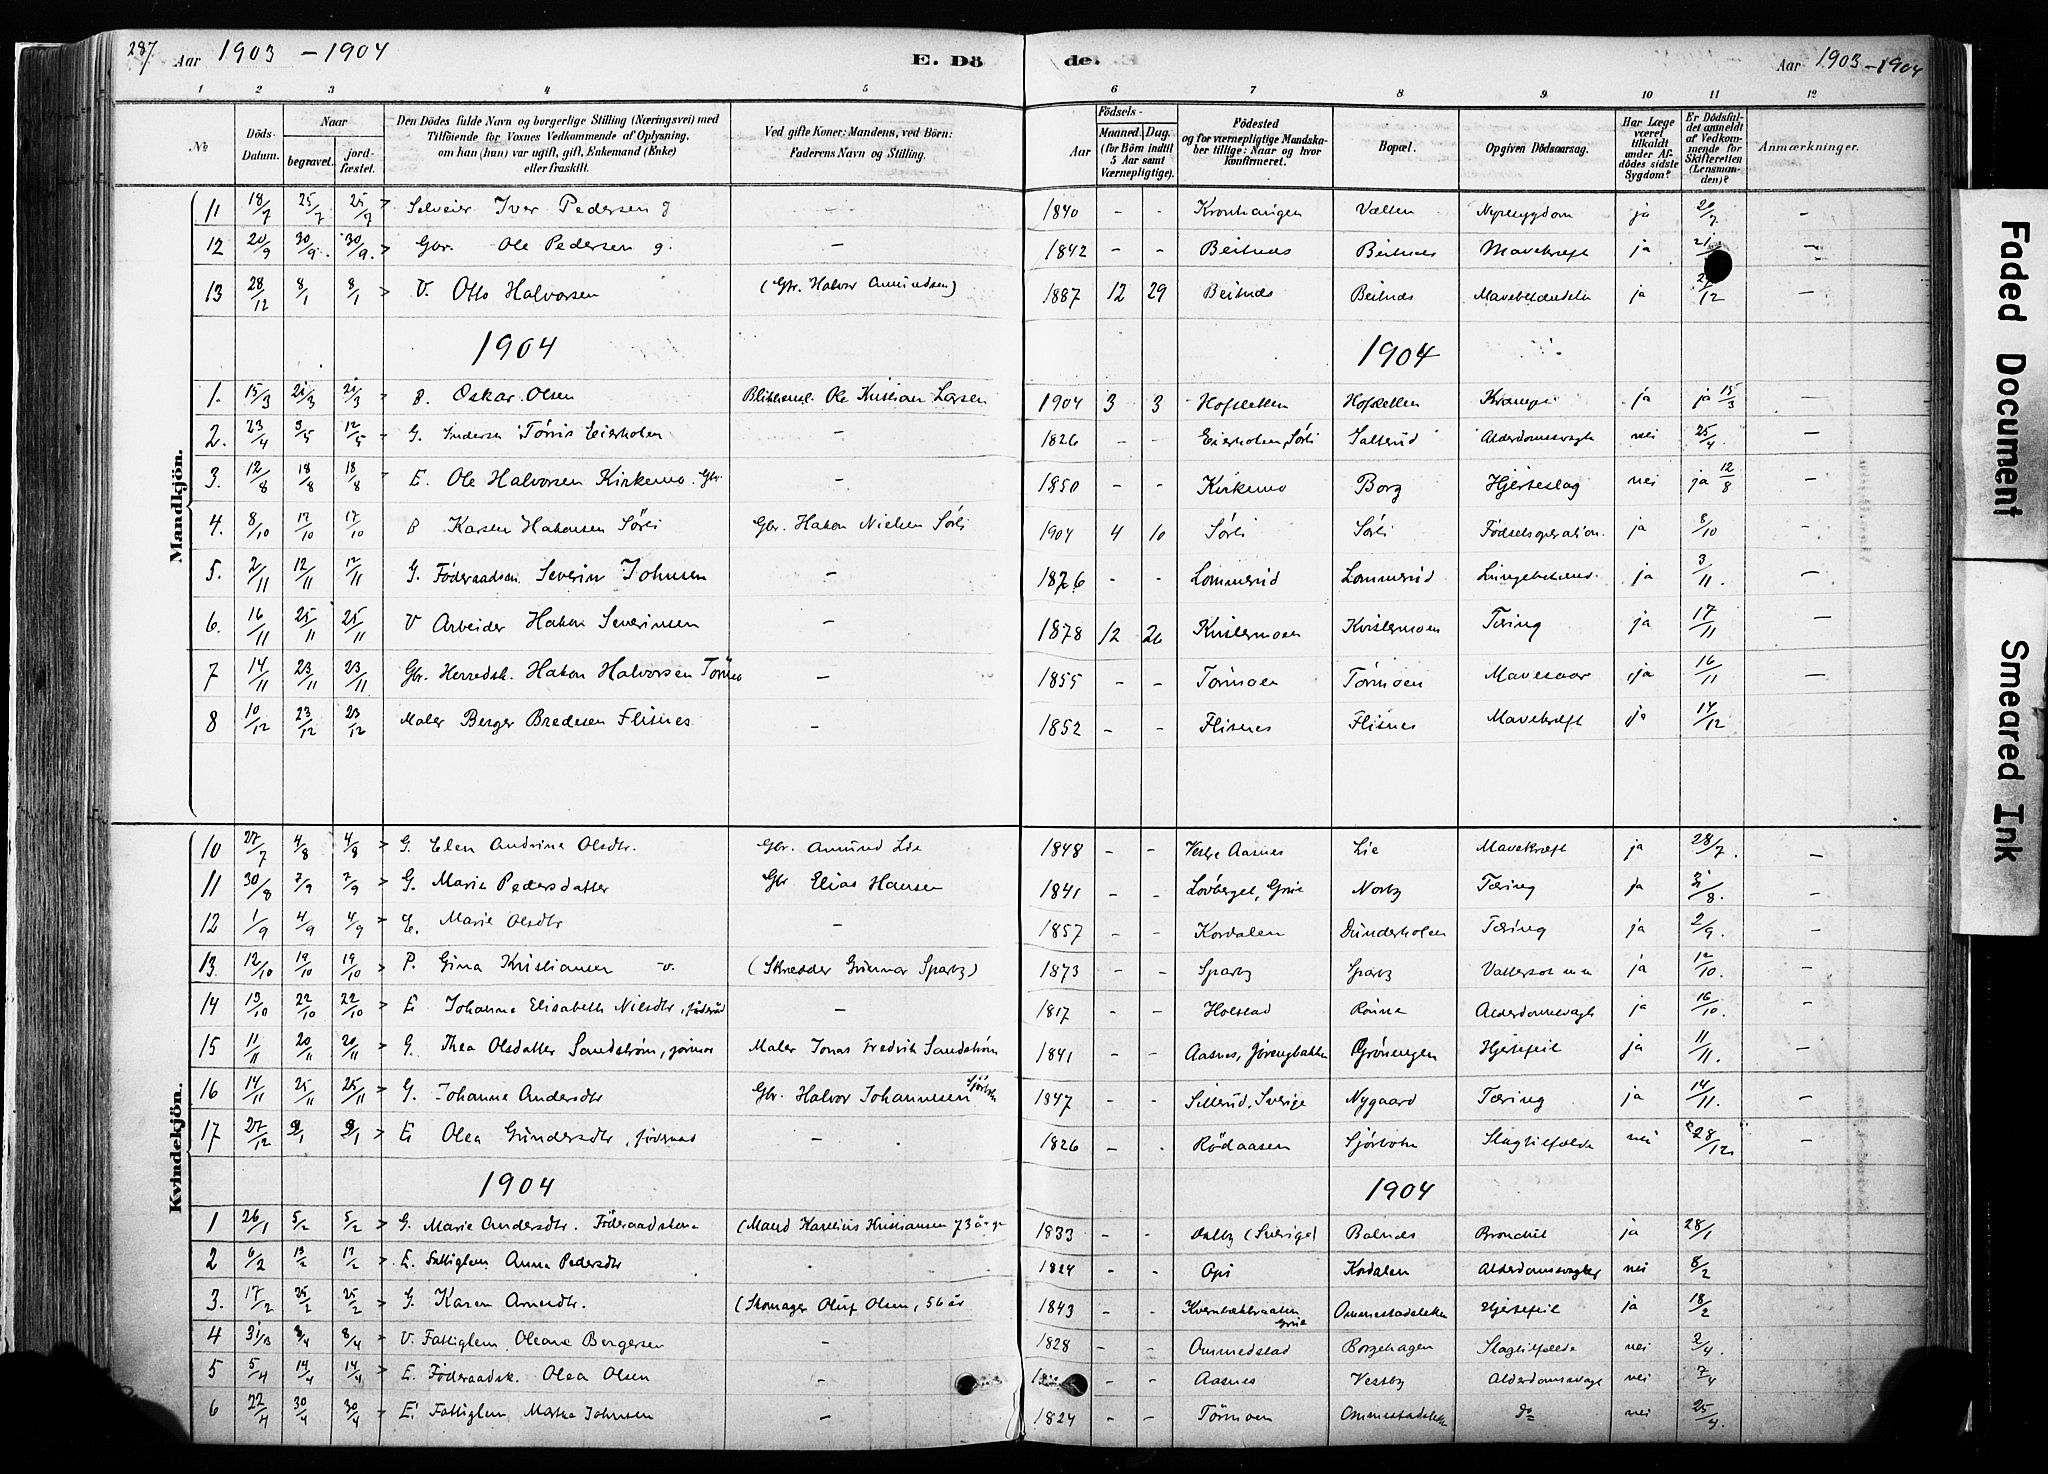 287 Aar 1903 - 1904 E. Dö de. Aar 1903 - 1904
1 2 3 4 5 6 7 8 9. 10 11 12
No Döds-Datum. Naar begravet. jordfæstet. Den Dödes fulde Navn og borgerlige Stilling (Næringsvei) med Tilföiende for Voxnes Vedkommende af Oplysning, om han (hun) var ugift, gift, Enkemand (Enke) eller fraskilt. Ved gifte Koner: Mandens, ved Börn: Faderens Navn og Stilling. Födsels- Aar Maaned. Dag. (for Börn indtil 5 Aar samt Værnepligtige). Födested og for værnepligtige Mandskaber tillige: Naar og hvor konfirmeret. Bopæl. Opgiven Dödsaarsag. Har Læge været tilkaldt under Afdödes sidste Sygdom? Er Dödsfaldet anmeldt af Vedkommende for Skifteretten (Lensmanden)? Anmærkninger.
Mandkjön.
11 18/7 25/7 25/7 > Selveier Iver Pedersen g - 1840 - - Kronhaugen Vælten Nyresygdom ja 20/7 -
12 20/9 30/9. 30/9. > Gbr. Ole Pedersen g. - 1842 - - Beitnes Beitnes Mavekræft ja -
13 28/12 8/1 8/1 > V. Otto Halvorsen (Gbr. Halvor Amundsen) 1887 12 29 Beitnes Beitnes Mavebetændelse ja -
1904 1904
1. 15/3 21/3 21/3 B. Oskar Olsen Ole Kristian Larsen 1904 3 3 Hofsletten Hofsletten Krampe ja ja 15/3 -
2. 23/4 3/5 12/5 G. Törris Eierholen - 1826 - - Eierholen, Sörli Salterud Alderdomssvaghe nei 25/4 -
3. 12/8 18/8 18/8 E. Ole Halvorsen Kirkemo. Gbr. - 1850 - - Kirkemo Borg Hjerteslag nei ja 12/8 -
4. 8/10 17/10 17/10 B Karsen Hakonsen Sörli Gbr. Hakon Nielsen Sörli 1904 4 10 Sörli Sörli Födselsoperation. ja 8/10 -
5. 2/11 12/11 12/11 G. Föderaadsm. Severin Johnsen - 1826 - - Lommerud Lommerud Lungebetænd. ja 3/11. -
6. 16/11 25/11 25/11 V Arbeider Hakon Severinsen - 1878 12 26 Kvislermoen Kvislermoen Tæring ja 17/11 -
7 14/11 23/11 23/11 Gbr. Herredsk. Hakon Halvorsen Törmo - 1855 - - Törmoen Törmoen Mavesaar ja 16/11 -
8 10/12 23/12 23/12 Maler Berger Bredesen Flisnes - 1852 - - Flisnes Flisnes Mavekræft ja 14/12 -
Kvindekjön.
10 27/7 4/8 4/8 > G. Elen Andrine Olsdtr. Gbr. Amund Lie 1848 - - Vestre Aasnes Lie Mavekræft ja 28/7. -
11 30/8 7/9 7/9 > G. Marie Pedersdatter Gbr Elias Hansen 1841 - - Lövberget, Grue Norby Tæring ja 31/8. -
12 1/9 4/9 4/9 > E. Marie Olsdtr - 1857 - - Kordalen Dunderholen Tæring ja 2/9. -
13. 12/10 19/10 19/10 > P. Gina Kristiansen -v. (Skrædder Gunnar Sparby) 1873 - - Sparby Sparby Vattersot ja 12/10. -
14 13/10 22/10 22/10 > E. Johanne Elisabeth Nilsdtr, föderaad - 1817 - - Holstad Rönna Alderdomssvaghe ja 16/10. -
15 11/11 20/11 20/11 > G. Thea Olsdatter Sandström, jormor Maler Jonas Fredrik Sandström 1841 - - Aasnes, Jörengbakken Grönengen Hjertefeil ja 11/11. -
16 14/11 25/11 25/11 > G. Johanne Andersdtr Gbr. Halvor Johannesen Sjörbotn 1847 - - Sillerud, Sverige Nygaard Tæring ja 14/11. -
17 27/12 9/1 9/1 > E. Olea Gundersdtr, föderaad - 1826 - - Rödaasen Sjörbotn Slagtilfælde nei 28/12 -
1904 1904
1 26/1 5/2 5/2 > G. Marie Andersdtr. Föderaadskone (Mand Karelius Kristiansen 73 år 1833 - - Dalby (Sverige) Balnes Bronchit ja 28/1 -
2 6/2 13/2 13/2 > E. Fattiglem Anna Pedersdtr - 1824 - - Opi Kordalen Alderdomssvaghet nei 8/2 -
3. 17/2 25/2 25/2 > G. Karen Arnesdtr. (Skomager Oluf Olsen, 56 år 1843 - - Kvernbækbraaten Grue Ommestadsletten Hjertefeil ja 18/2 -
4 31/3 8/4 8/4 > V. Fattiglem Oleane Bergersen - 1828 - - Ommedstad Borgehagen Slagtilfælde nei 2/4. -
5 5/4 14/4 14/4 > E. Föderaadsk. Olea Olsen - - - Aasnes Vestby Alderdomssvagh nei 7/4 -
6 22/4 30/4 30/4 > E. Fattiglem Marthe Johnsen - 1824 - - Törmoen Ommestadsletten do nei 25/4. -
Faded Document
Smeared Ink